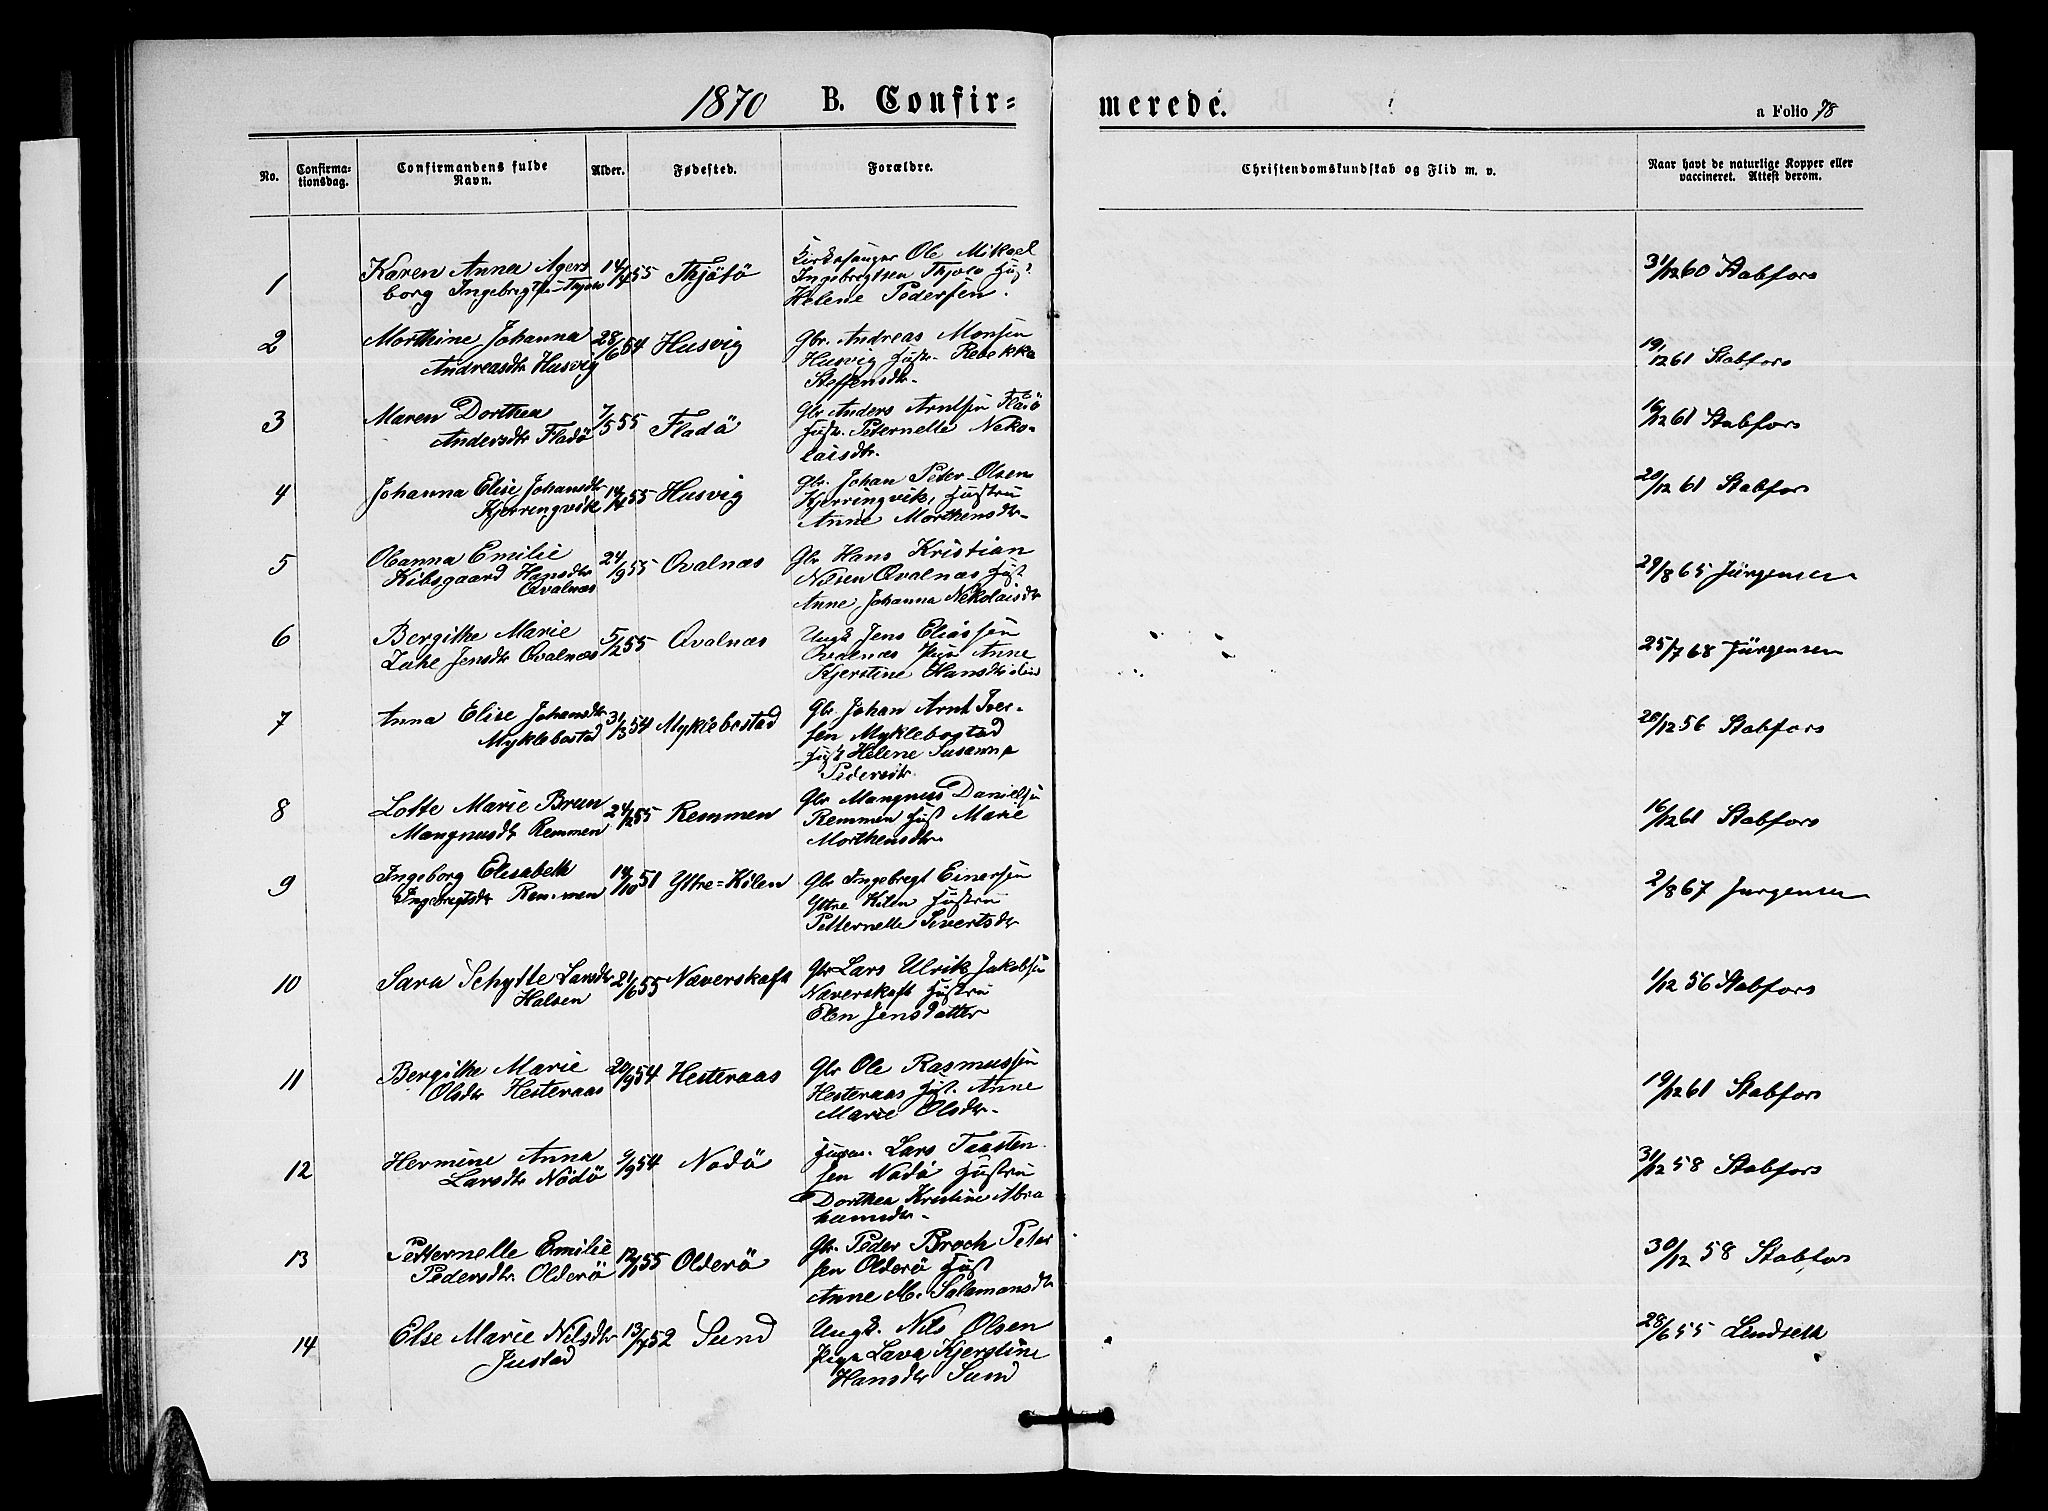 1870 B. Confir=
merede.
a Folio 78
No.
Confirma=
tionsdag.
Confirmandens fulde
Navn.
Alder.
Fødested.
Forældre.
Christendomskundskab og Flid m. v.
Naar havt de naturlige Kopper eller
vaccineret. Attest derom.
1 Karen Anna Agers
borg Ingebrigtsen
14/ 55 Thjötö
Ole Mikael
Ingebrigtsen Hust.
Helene Pedersen.
31/12 60 Stabfors
2 Morthine Johanna
Andreasdtr Husvig
28/6 54 Husvig
Gbr. Andreas Monsen
Husvig Hustr. Rebekka
Steffensdtr.
19/12 61 Stabfors
3 Maren Dorthea
Andersdtr Fladö
7/5 55 Fladö
Gbr Anders Arntsen Fladö
Hustr. Peternelle Neko-
laisdtr.
16/12 61 Stabfors
4 Johanna Elise Johansdtr
Kjerringvik
14/4 55 Husvig
Gbr. Johan Peter Olsen
Kjerringvik, Hustru
Anne Morthensdtr-
20/12 61 Stabfors
5 Olanna Emilie
Kibsgaard Hansdtr
Qvalnæs
24/9 55 Qvalnæs
Gbr Hans Kristian
Nilsen Qvalnæs Hust
Anne Johanna Nekolaisdtr
29/8 65 Jürgensen
6 Bergithe Marie
Jensdtr Qvalnæs
5/2 55 Qvalnæs
Ungk Jens Eliassen
Qvalnæs Pige Anne
Kjerstine Hansdtr
25/7 68 Jürgensen
7 Anna Elise Johansdtr
Myklebostad
31/3 54 Myklebostad
Gbr. Johan Arnt Iver-
sen Myklebostad
Hust Helene Susanna
Pedersdtr.
20/12 56 Stabfors
8 Lotte Marie Brun
Mangnusdtr Remmen
24/12 55 Remmen
Gbr Mangnus Danielsen
Remmen Hust Marie
Morthensdtr.
16/12 61 Stabfors
9 Ingeborg Elisabeth
Ingebrigtsdtr Remmen
14/10 51 Yttre=Kilen
Gbr Ingebregt Einersen
Yttre Kilen Hustru
Petternelle Sivertsdtr
2/8 67 Jurgensen
10 Sara Schytte Larsdtr
Halsen
21/6 55 Næverskaft
Gbr Lars Ulrik Jakobsen
Næverskaft Hustru
Elen Jensdatter
1/12 56 Stabfors
11 Bergithe Marie
Olsdtr Hesteraas
20/9 54 Hesteraas
Gbr Ole Rasmussen
Hesteraas Hust. Anne
Marie Olsdtr-
19/12 61 Stabfors
12 Hermine Anna
Larsdtr Nödö
9/9 54 Nodö
Lars Taasten-
sen Nodö Hustru
Dorthea Kristine Abra
hamsdtr-
31/12 58 Stabfors
13 Petternelle Emilie
Pedersdtr. Olderö
12/ 55 Olderö
Gbr. Peder Broch Peter
sen Olderö Hust
Anne M. Salamonsdtr
30/12 58 Stabfors
14 Else Marie Nilsdtr
Justad
13/7 52 Sund
Ungk. Nils Olsen
Pige Lava Kjerstine
Hansdtr Sund
28/6 55 Lindseth